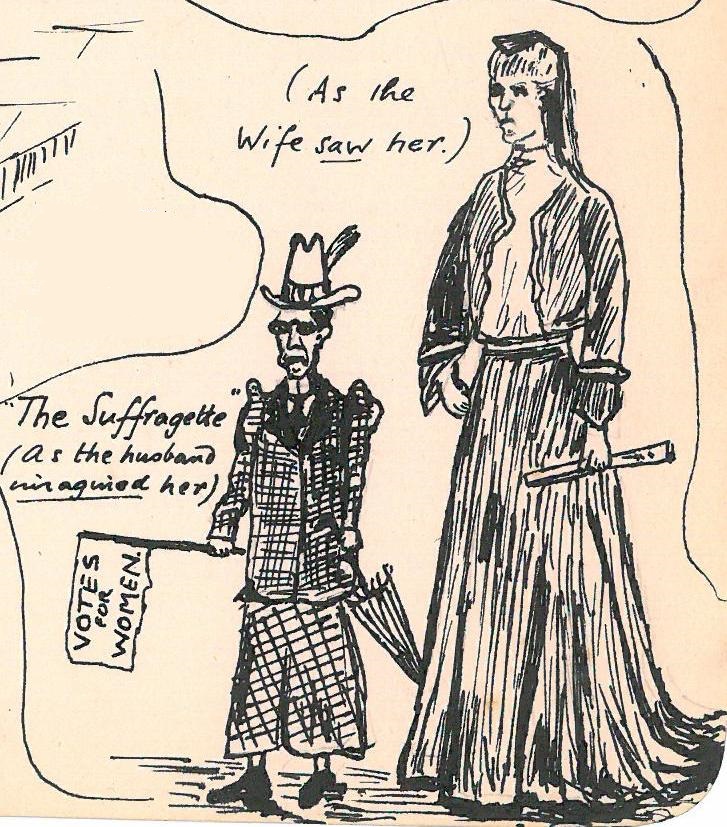 (As the
Wife saw her.)
"The Suffragette"
(As the husband
imagined her)
VOTES
FOR
WOMEN.